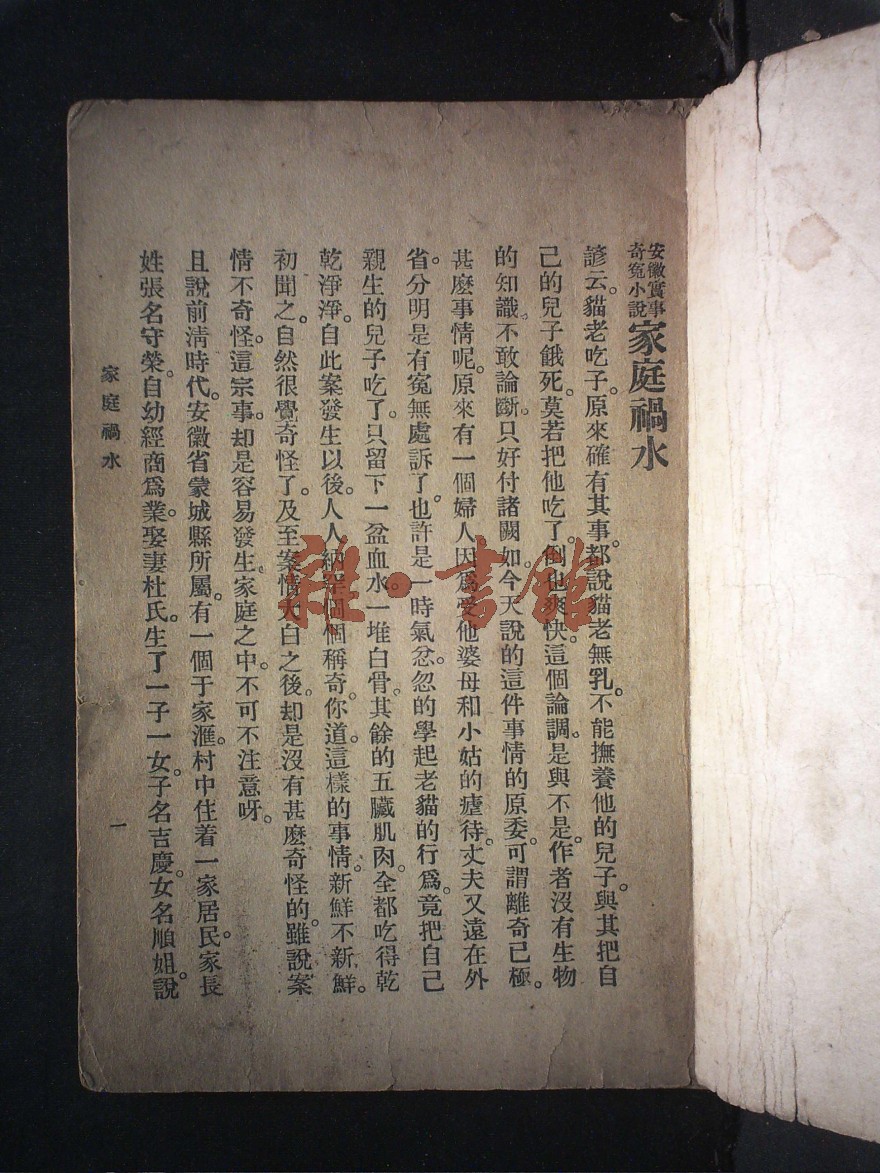 安徽實事
奇寃小說
家庭禍水
諺云。貓老吃子。原來確有其事。都說貓老無乳。不能撫養他的兒子。與其把自
己的兒子餓死。莫若把他吃了。倒也爽快。這個論調。是與不是。作者沒有生物
的知識。不敢論斷。只好付諸闕如。今天說的這件事情的原委。可謂離奇已極。
甚麼事情呢。原來有一個婦人因爲受他婆母和小姑的瘧待。丈夫又遠在外
省。分明是有寃無處訴了。也許是一時氣忿。忽的學起老貓的行爲。竟把自己
親生的兒子吃了。只留下一盆血水。一堆白骨。其餘的五臟肌肉。全都吃得乾
乾淨淨。自此案發生以後。人人納罕。個個稱奇。你道這樣的事情。新鮮不新鮮。
初聞之。自然很覺奇怪了。及至案情大白之後。却是沒有甚麼奇怪的。雖說案
情不奇怪。這宗事。却是容易發生。家庭之中。不可不注意呀。
且說前清時代。安徽省蒙城縣所屬。有一個于家滙。村中住着一家居民。家長
姓張名守榮。自幼經商爲業。娶妻杜氏。生了一子一女。子名吉慶。女名順姐。說
家庭禍水
一
雜·書館